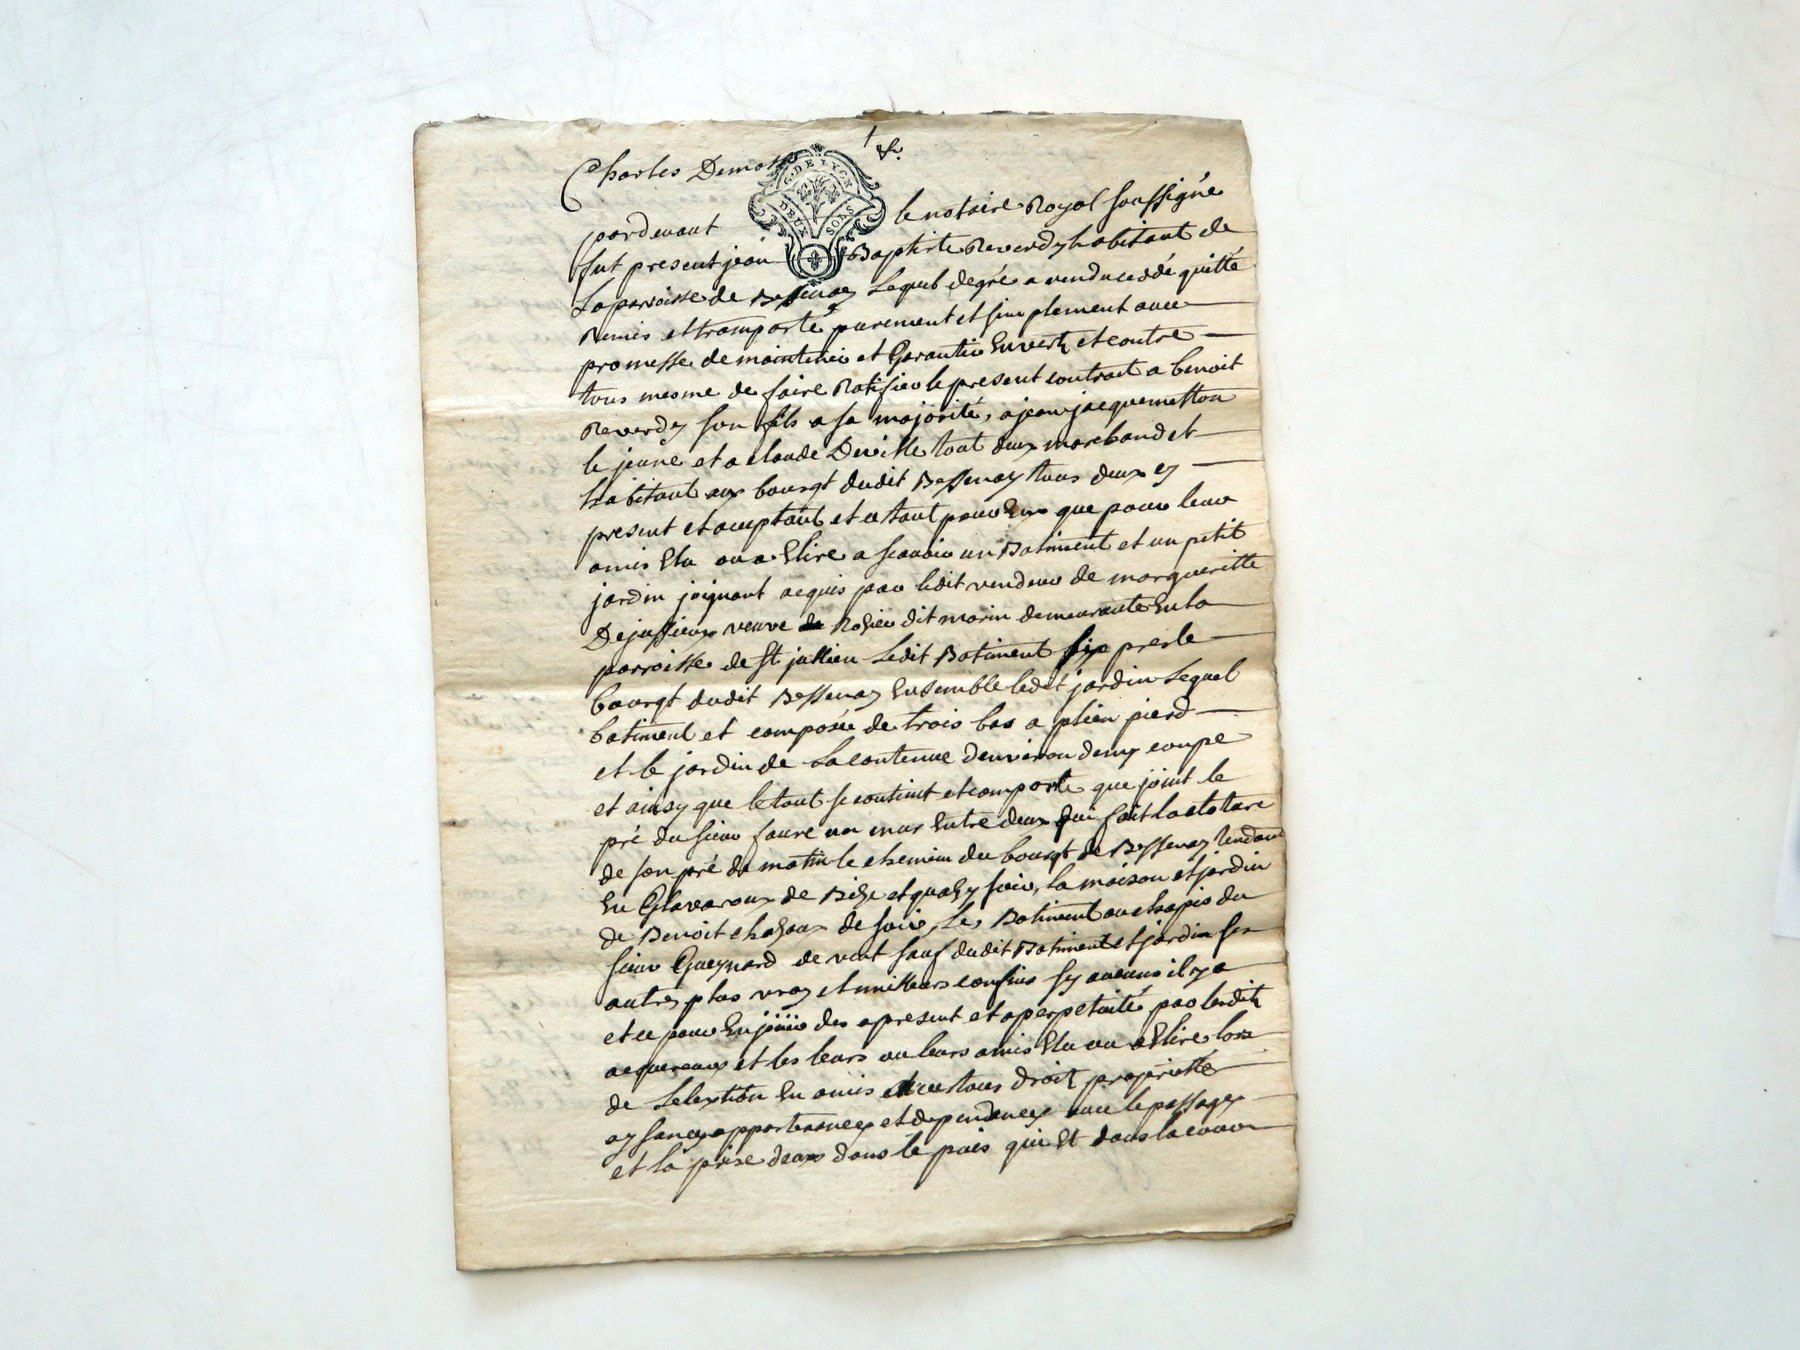 Charles Demot
G. DE LYON
DEUX SOLS
pardevant le notaire Royal soussigné
fut present jean Baptiste Reverdy habitant de
La paroisse de Bessenay Lequel degré a vendu ceddé quitté
Remis et transporté purement et simplement avec
promesse de maintenir et Garantir Envers et contre
tous mesme de faire Ratifier le present contract a benoit
Reverdy son fils a sa majorité, a jean jacquemetton
le jeune et a claude Deville tout deux marchand et
habitant aux bourgt dudit Bessenay tous deux ey
present et acceptant et ce tant pour Eux que pour leur
amis Elu ou a Elire a scavoir un Batiment et un petit
jardin joignant acquis par ledit vendeur de margueritte
Dejussieux veuve Rosier dit marin demeurante En la
parroisse de St jullien Ledit Batiment six pres le
bourgt dudit Bessenay Ensemble ledit jardin Lequel
batiment et composée de trois bas a plien pierd
et le jardin de La contenue denviron demy coupe
et ainsy que le tout se contient et comporte que joint le
pré du sieur faure un mur Entre deux qui fait la cloture
de son pré de matin le chemin du bourgt de Bessenay Tendant
En Glavaroux de Bize et quasy soir, La maison et jardin
de Benoit chazaux de soir, Le Batiment ou chapis du
sieur Gueynard de vent sauf dudit Batiment et jardin ses
autres plus vray et meilleurs confins sy aucuns il y a
et ce pour En jouir des apresent et a perpetuité par lesdits
acquereurs et les leurs ou leurs amis Elu ou a Elire lors
de Lelextion En amis avec tous droit proprietté
aysances appartenances et dependances avec le passages
et la prise deaux dans le puis qui Et dans la cour